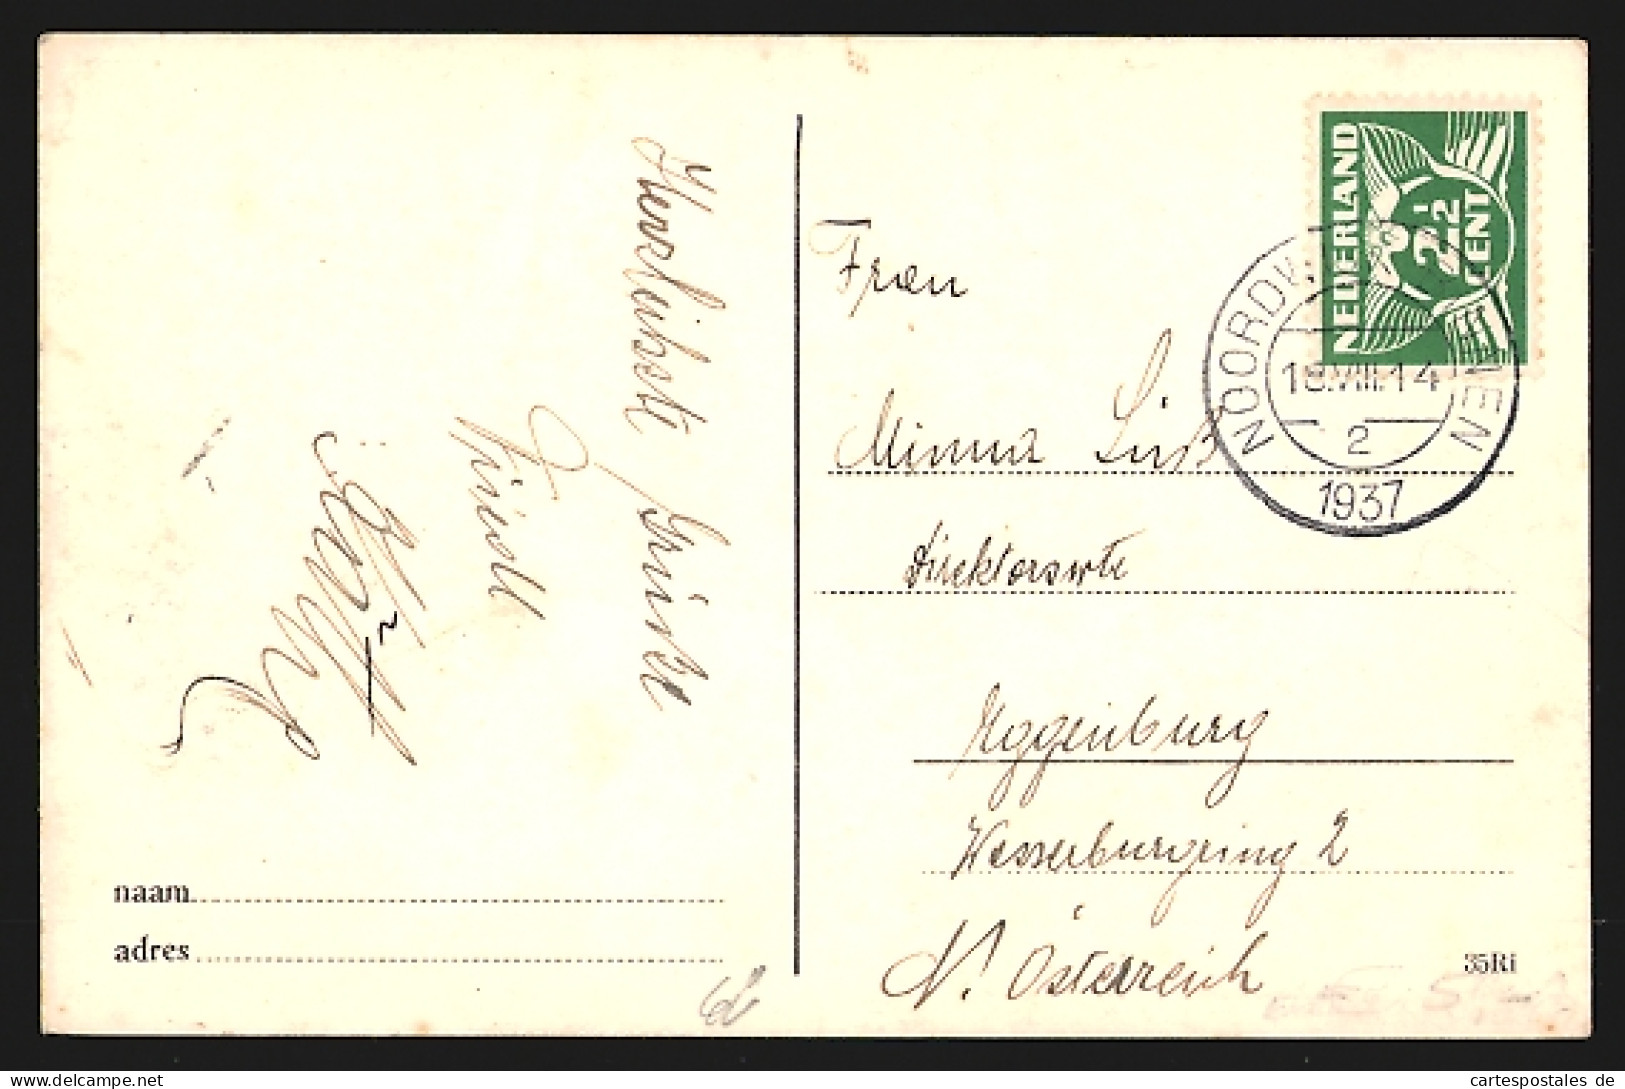 Herzlichste Grüße
Friedl
Frau
Minna Süß
Direktorswte
Eggenburg
Wasserburgring 2
N. Österreich
NEDERLAND
2½
CENT
18.VIII.14
2
1937
naam
adres
35Ri
cartespostales de